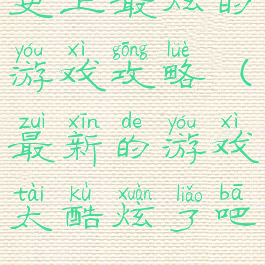 更上最炫的
yóu xì gōng lüè
游戏攻略（
zuì xīn de yóu xì
最新的游戏
tài kù xuàn liǎo bā
太酷炫了吧